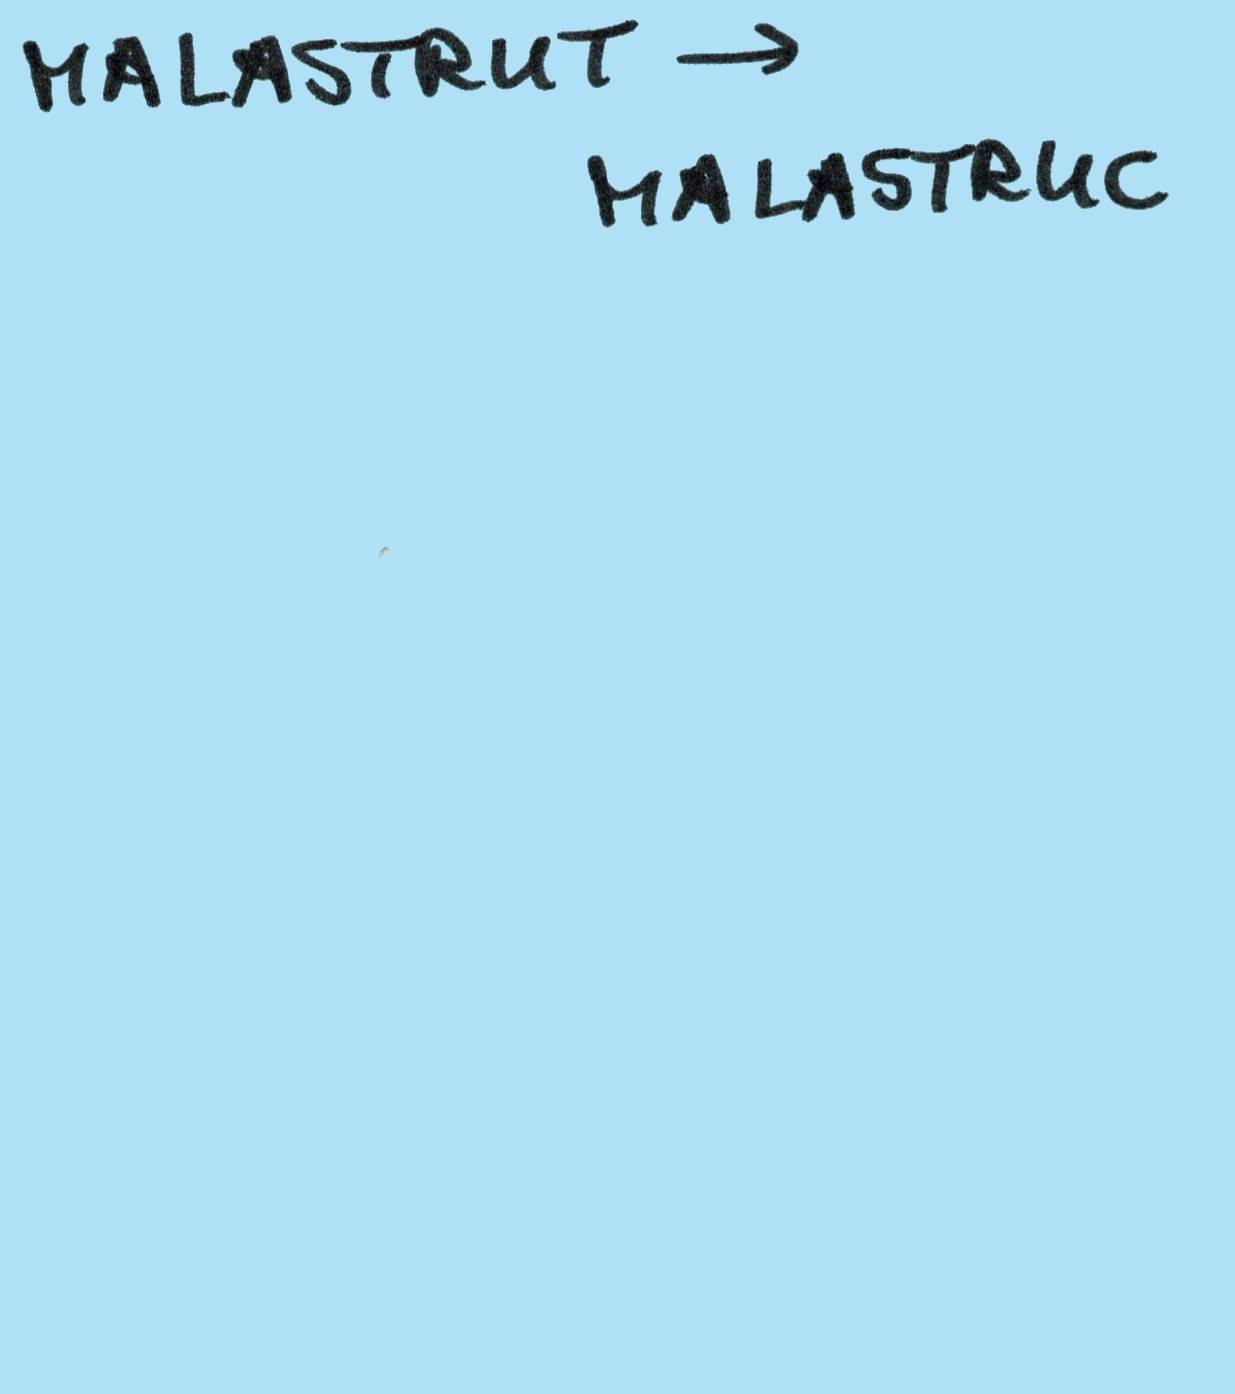 MALASTRUT →
MALASTRUC